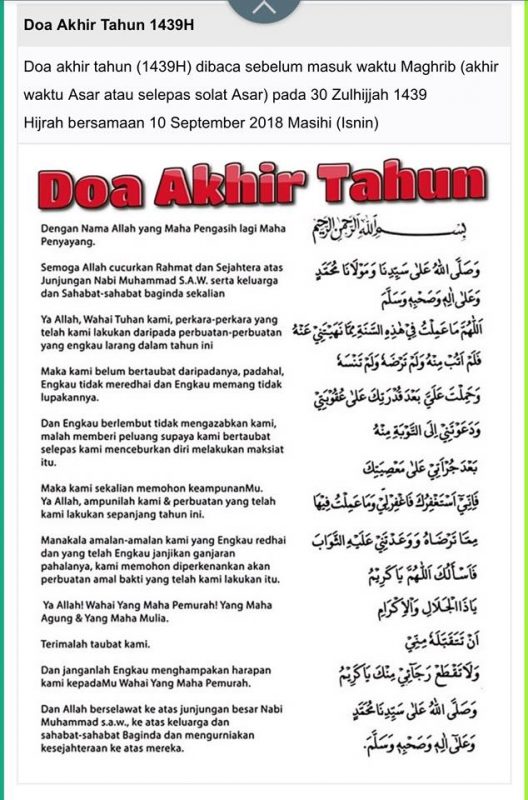 Doa Akhir Tahun 1439H
Doa akhir tahun (1439H) dibaca sebelum masuk waktu Maghrib (akhir
waktu Asar atau selepas solat Asar) pada 30 Zulhijjah 1439
Hijrah bersamaan 10 September 2018 Masihi (Isnin)
Doa Akhir Tahun
Dengan Nama Allah yang Maha Pengasih lagi Maha
Penyayang.
Semoga Allah cucurkan Rahmat dan Sejahtera atas
Junjungan Nabi Muhammad S.A.W. serta keluarga
dan Sahabat-sahabat baginda sekalian
Ya Allah, Wahai Tuhan kami, perkara-perkara yang
telah kami lakukan daripada perbuatan-perbuatan
yang engkau larang dalam tahun ini
Maka kami belum bertaubat daripadanya, padahal,
Engkau tidak meredhai dan Engkau memang tidak
lupakannya.
Dan Engkau berlembut tidak mengazabkan kami,
malah memberi peluang supaya kami bertaubat
selepas kami menceburkan diri melakukan maksiat
itu.
Maka kami sekalian memohon keampunanMu.
Ya Allah, ampunilah kami & perbuatan yang telah
kami lakukan sepanjang tahun ini.
Manakala amalan-amalan kami yang Engkau redhai
dan yang telah Engkau janjikan ganjaran
pahalanya, kami memohon diperkenankan akan
perbuatan amal bakti yang telah kami lakukan itu.
Ya Allah! Wahai Yang Maha Pemurah! Yang Maha
Agung & Yang Maha Mulia.
Terimalah taubat kami.
Dan janganlah Engkau menghampakan harapan
kami kepadaMu Wahai Yang Maha Pemurah.
Dan Allah berselawat ke atas junjungan besar Nabi
Muhammad s.a.w., ke atas keluarga dan
sahabat-sahabat Baginda dan mengurniakan
kesejahteraan ke atas mereka.
بِسْمِ اللهِ الرَّحْمٰنِ الرَّحِيْمِ
وَصَلَّى اللهُ عَلٰى سَيِّدِنَا وَمَوْلَانَا مُحَمَّدٍ
وَعَلٰى اٰلِهٖ وَصَحْبِهٖ وَسَلَّمَ
اَللّٰهُمَّ مَا عَمِلْتُ فِيْ هٰذِهِ السَّنَةِ مِمَّا نَهَيْتَنِيْ عَنْهُ
فَلَمْ اَتُبْ مِنْهُ وَلَمْ تَرْضَهُ وَلَمْ تَنْسَهُ
وَحَمِلْتَ عَلَيَّ بَعْدَ قُدْرَتِكَ عَلٰى عُقُوْبَتِيْ
وَدَعَوْتَنِيْ اِلَى التَّوْبَةِ مِنْهُ
بَعْدَ جُرْاَتِيْ عَلٰى مَعْصِيَتِكَ
فَاِنِّيْ اَسْتَغْفِرُكَ فَاغْفِرْلِيْ وَمَا عَمِلْتُ فِيْهَا
مِمَّا تَرْضَاهُ وَوَعَدْتَنِيْ عَلَيْهِ الثَّوَابَ
فَاَسْأَلُكَ اللّٰهُمَّ يَا كَرِيْمُ
يَا ذَا الْجَلَالِ وَالْاِكْرَامِ
اَنْ تَتَقَبَّلَهُ مِنِّيْ
وَلَا تَقْطَعْ رَجَآئِيْ مِنْكَ يَا كَرِيْمُ
وَصَلَّى اللهُ عَلٰى سَيِّدِنَا مُحَمَّدٍ
وَعَلٰى اٰلِهٖ وَصَحْبِهٖ وَسَلَّمَ.